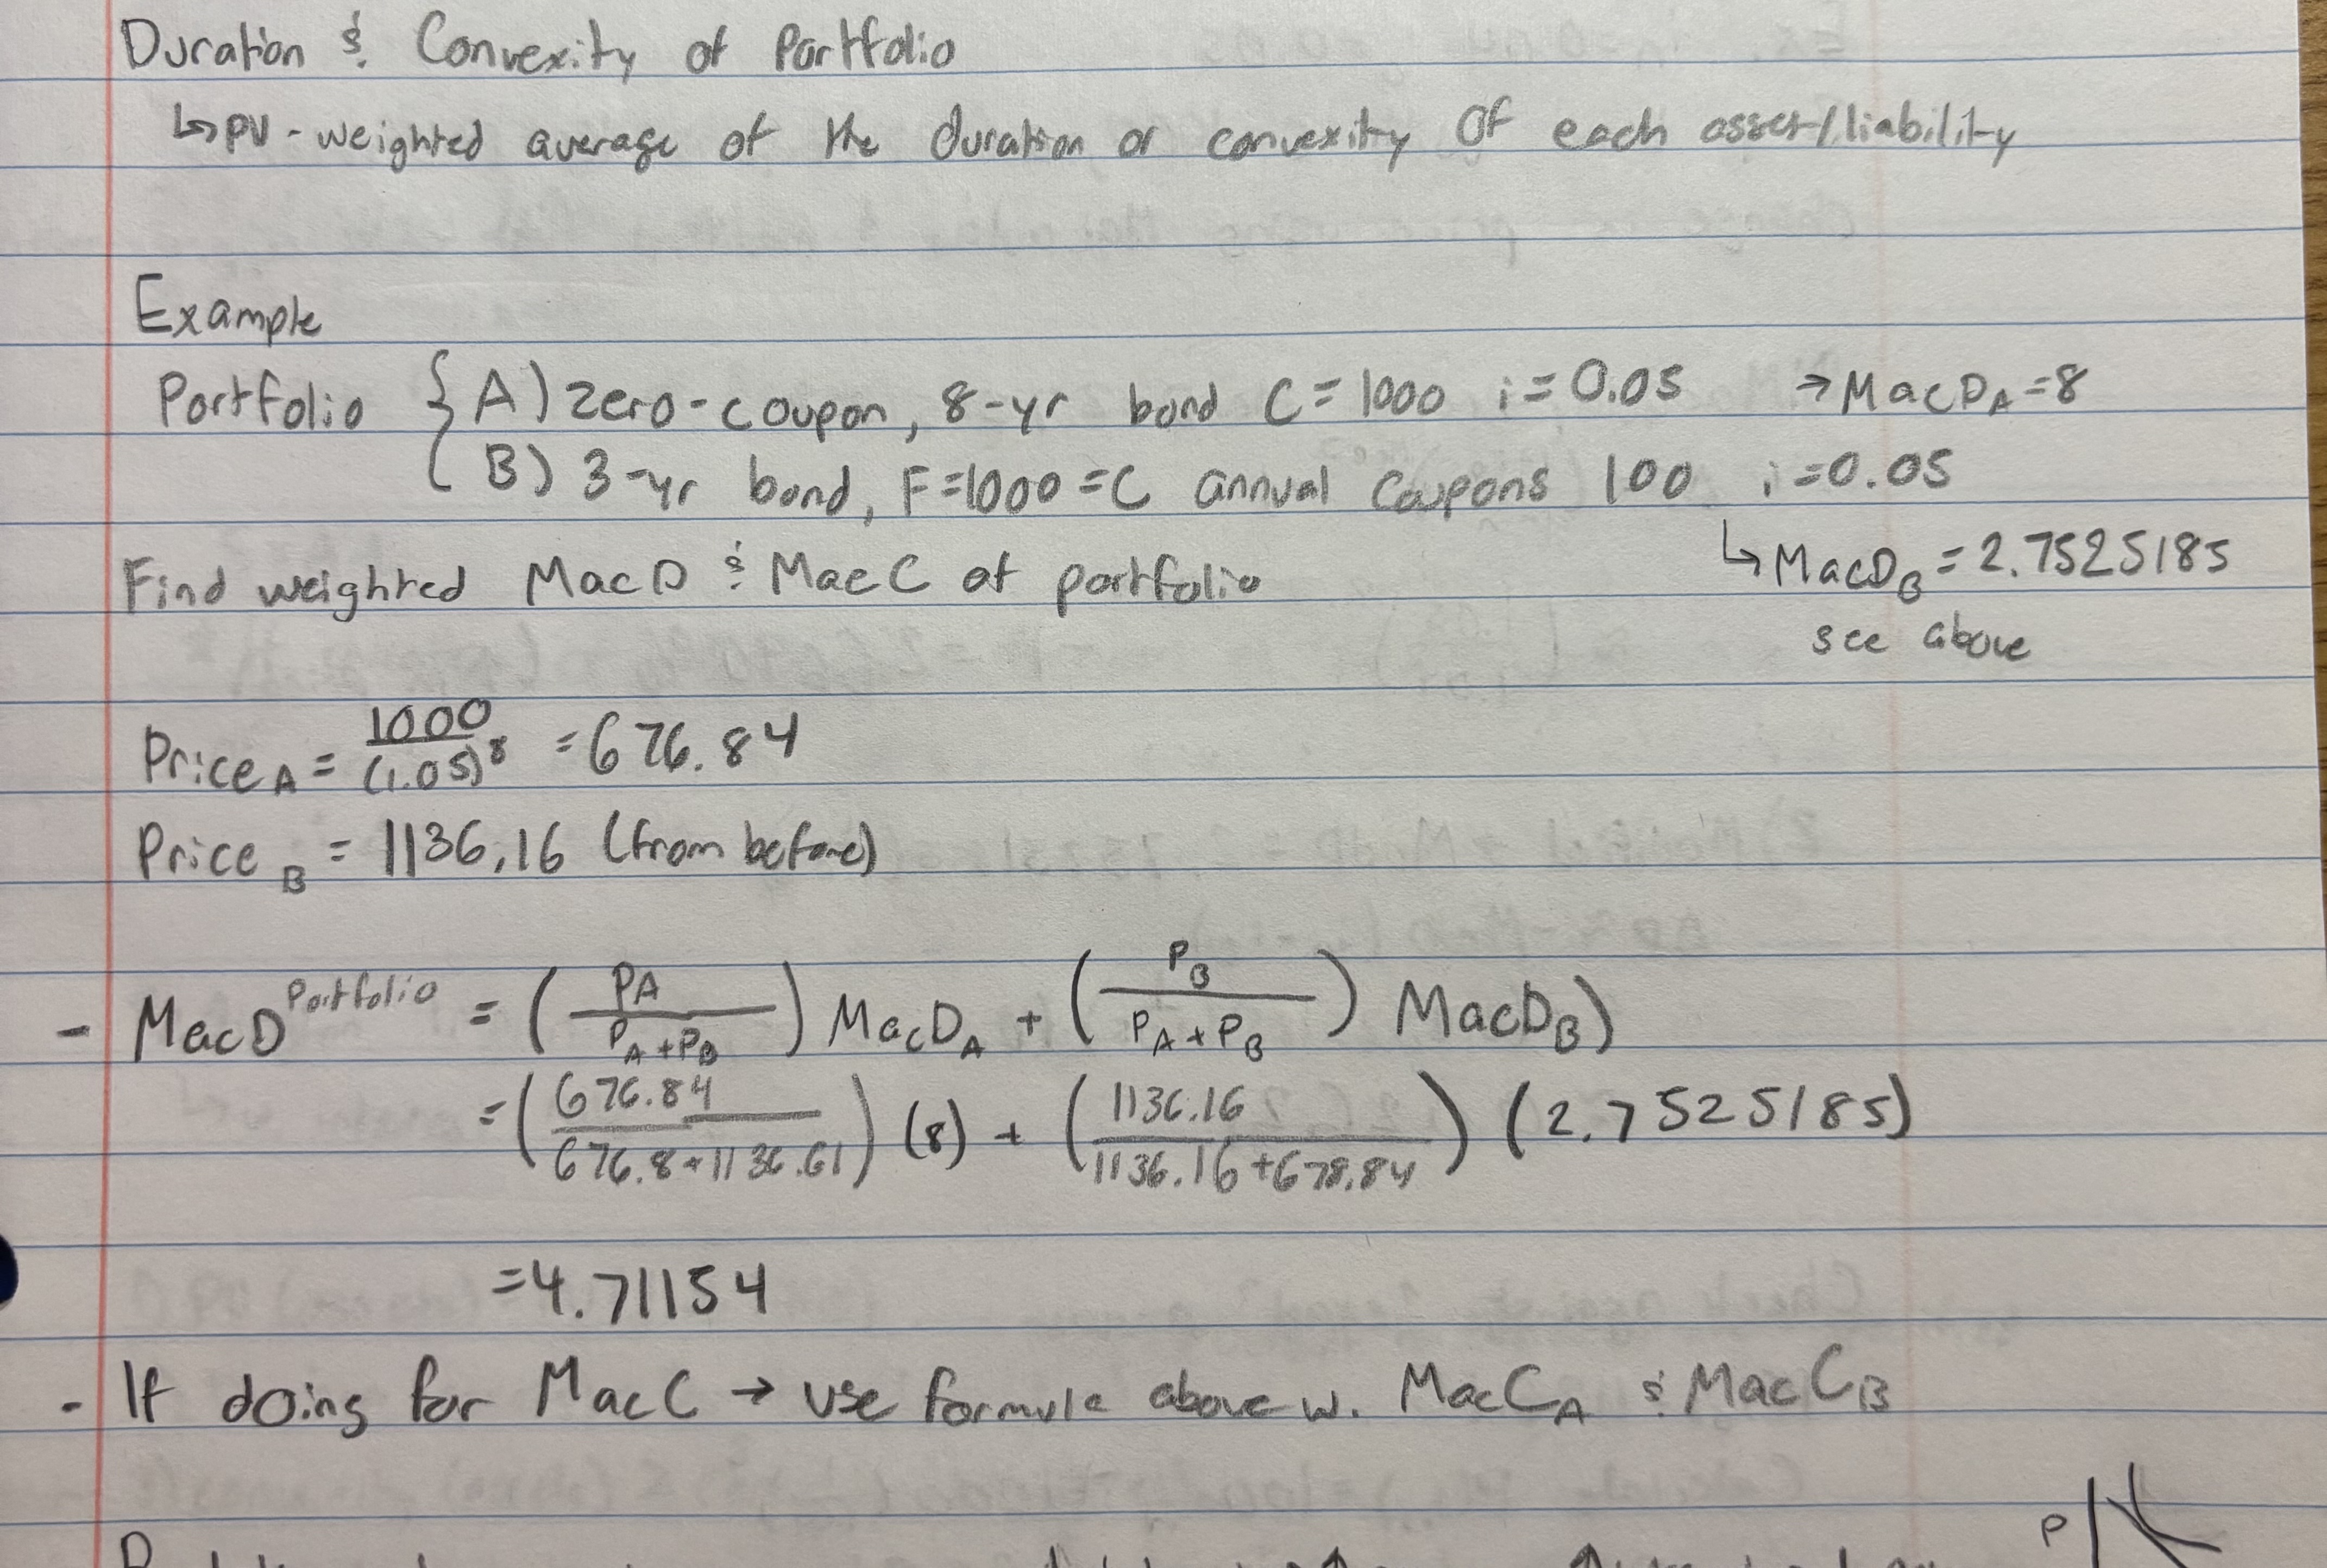 Duration & Convexity of Portfolio
↳ PV-weighted average of the duration or convexity of each asset/liability
Example
Portfolio { A) zero-coupon, 8-yr bond C = 1000 i = 0.05 → MacD_A = 8
B) 3-yr bond, F = 1000 = C annual coupons 100 i = 0.05
↳ MacD_B = 2.7525185
Find weighted MacD & MacC of portfolio
see above
Price_A = 1000/(1.05)^8 = 676.84
Price_B = 1136.16 (from before)
- MacD^Portfolio = (P_A/(P_A + P_B)) MacD_A + (P_B/(P_A + P_B)) MacD_B)
= (676.84/(676.8 + 1136.61)) (8) + (1136.16/(1136.16 + 678.84)) (2.7525185)
= 4.71154
- If doing for MacC → use formula above w. MacC_A & MacC_B
P